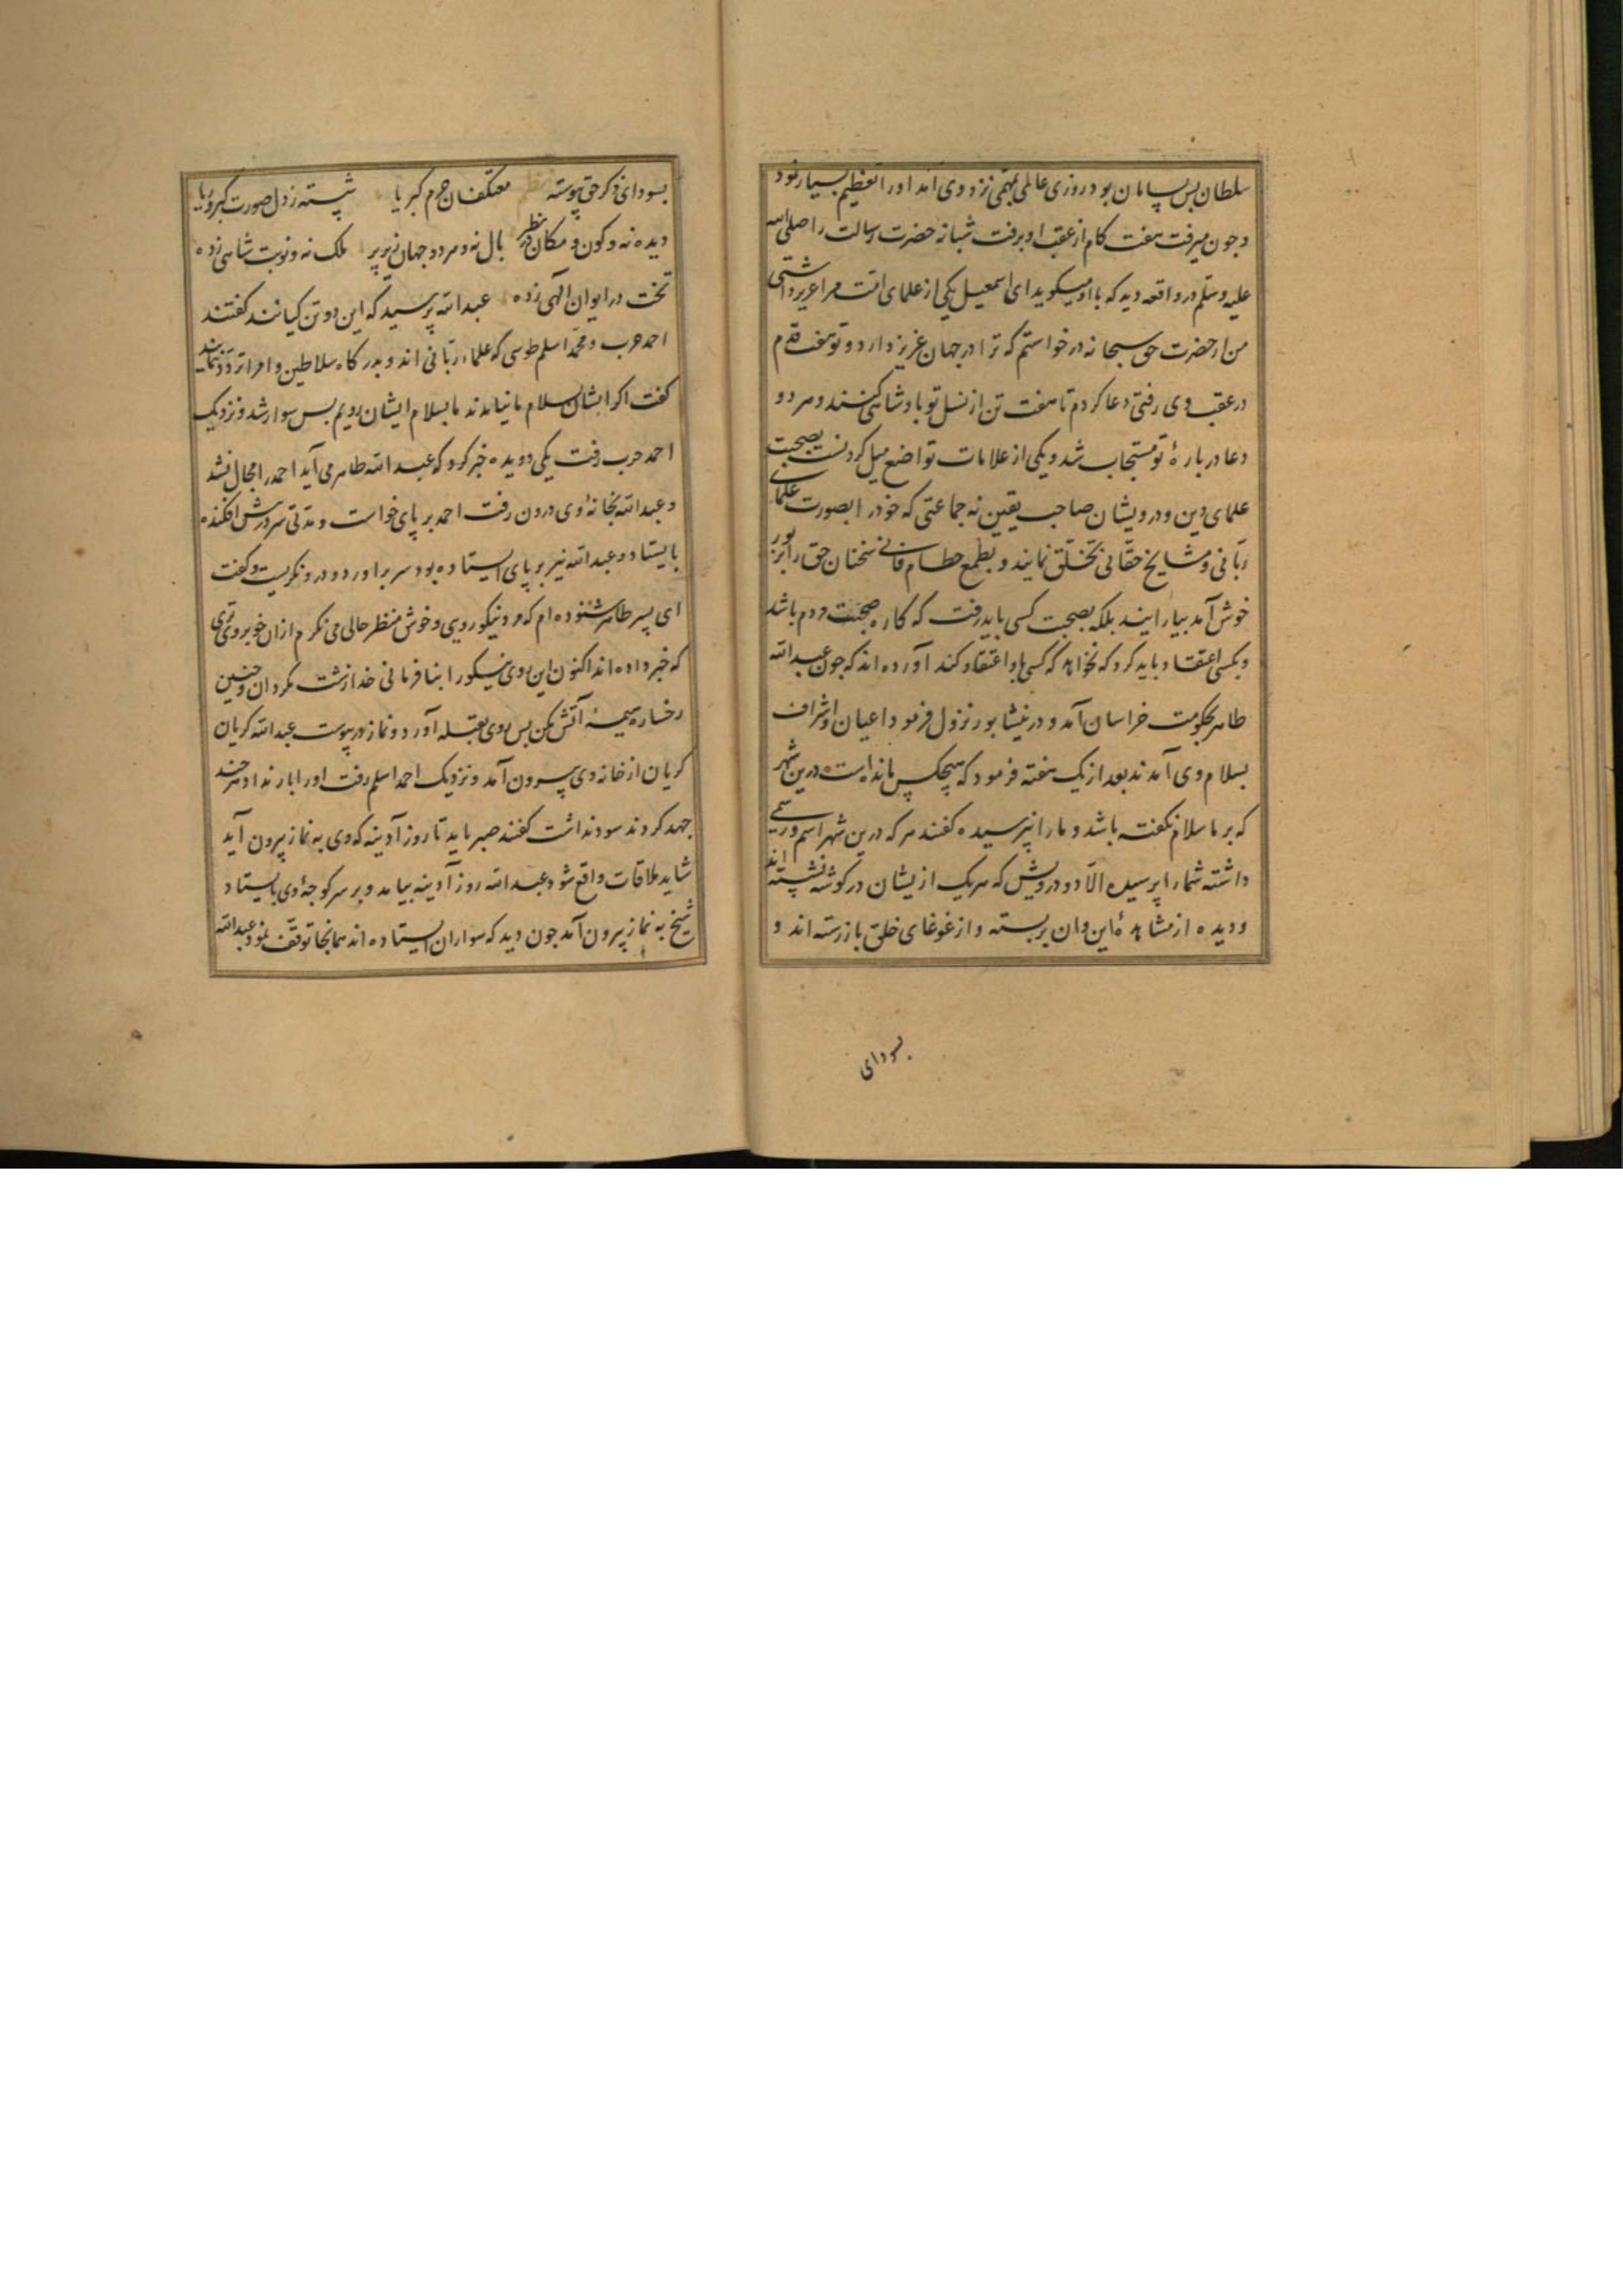 سلطان بس پسامان بود روزی عالمی بمهمی نزد وی آمد اورا تعظیم بسیار نمود
و جون میرفت هفت کام از عقب او برفت شبانه حضرت رسالت را صلی الله
علیه وسلم در واقعه دید که با او میکوید ای اسمعیل یکی از علمای امت مرا عزیز داشتی
من از حضرت حق سبحانه درخواستم که ترا در جهان عزیز دارد و تو هفت قدم
در عقب وی رفتی دعا کردم تا هفت تن از نسل تو پادشاهی کنند و هر دو
دعا در بارهٔ تو مستجاب شد و یکی از علامات تواضع میل کردنست بصحبت
علمای دین و درویشان صاحب یقین نه جماعتی که خود را بصورت علمای
ربانی و مشایخ حقانی تخلق نمایند و بطمع حطام فانی سخنان حق را بزیور
خوش آمد بیارایند بلکه بصحبت کسی باید رفت که کاره صحبت مردم باشد
و بکسی اعتقاد باید کرد که نخواهد که کسی باو اعتقاد کند آورده اند که جون عبد الله
طاهر بحکومت خراسان آمد و در نیشابور نزول فرمود اعیان و اشراف
بسلام وی آمدند بعد از یک هفته فرمود که هیچکس مانده است درین شهر
که بر ما سلام نکفته باشد و ما را نپرسیده کفتند هر که درین شهر اسم و رسمی
داشته شما را پرسیده الا دو درویش که هر یک از یشان در کوشه نشسته اند
و دیده از مشاهدهٔ این و آن بر بسته و از غوغای خلق باز رسته اند و
بسودای
بسودای ذکر حق پیوسته نظم معتکفان حرم کبریا شسته ز دل صورت کبر و ریا
دیده نه و کون و مکان در نظر بال نه و هر دو جهان زیر پر ملک نه و نوبت شاهی زده
تخت در ایوان الهی زده عبد الله پرسید که این دو تن کیانند کفتند
احمد حرب و محمد اسلم طوسی که علماء ربانی اند و بدر کاه سلاطین و امرا تردد ننمایند
کفت اکر ایشان بسلام ما نیامدند ما بسلام ایشان رویم بس سوار شد و نزدیک
احمد حرب رفت یکی دویده خبر کرد که عبد الله طاهر می آید احمد را مجال نشد
و عبد الله بخانهٔ وی درون رفت احمد بر پای خواست و مدتی سر در پیش افکنده
بایستاد و عبد الله نیز بر پای ایستاده بود سر برآورد و درو نکریست و کفت
ای پسر طاهر شنوده ام که مرد نیکو روی و خوش منظر حالی می نکرم از ان خوبروی تری
که خبر داده اند اکنون این روی نیکو را بنافرمانی خدا زشت مکردان و چنین
رخساره هیمهٔ آتش مکن بس روی بقبله آورد و نماز در پیوست عبد الله کریان
کریان از خانه وی بیرون آمد و نزدیک احمد اسلم رفت اورا بار نداد هر چند
جهد کردند سود نداشت کفتند صبر باید تا روز آدینه که وی به نماز بیرون آید
شاید ملاقات واقع شود عبد الله روز آدینه بیامد و بر سر کوجهٔ وی بایستاد
شیخ به نماز بیرون آمد جون دید که سواران ایستاده اند همانجا توقف نمود عبد الله